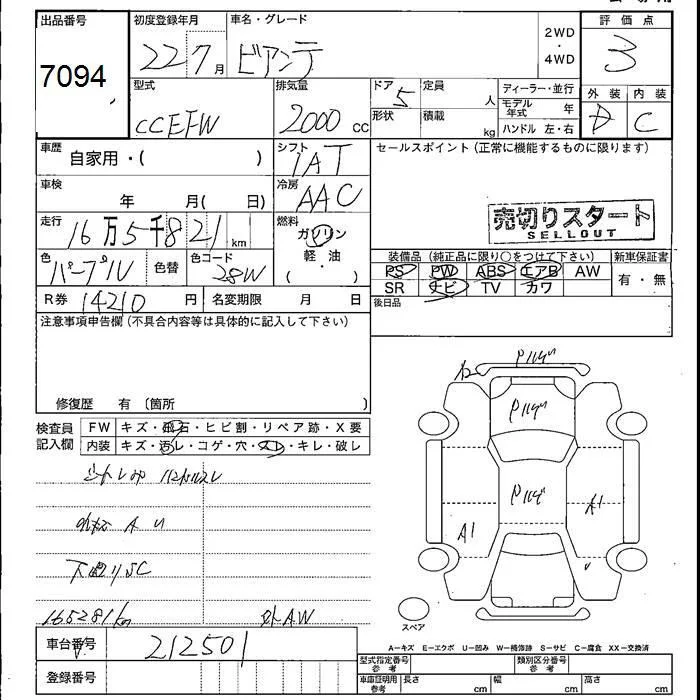 出品番号
7094
初度登録年月
22 7 月
車名・グレード
ビアンテ
2WD
・
4WD
評価点
3
外装 内装
D C
型式
CCEFW
排気量
2000 cc
ドア 5
形状
定員
人
積載
kg
ディーラー・並行
モデル年式 年
ハンドル 左・右
車歴
自家用・( )
シフト
IAT
セールスポイント (正常に機能するものに限ります)
車検
年 月( 日)
冷房
AAC
売切りスタート
SELLOUT
走行
16万5千821 km
燃料
ガソリン
軽・油
( ・ )
色
パープル
色替
色コード
28W
装備品 (純正品に限り○をつけて下さい)
新車保証書
PS PW ABS エアB AW
有・無
SR ナビ TV カワ
後日品
R券 14210 円
名変期限 月 日
注意事項申告欄 (不具合内容等は具体的に記入して下さい)
修復歴 有 〔箇所 〕
検査員記入欄
FW キズ・飛石・ヒビ割・リペア跡・X要
内装 キズ・汚レ・コゲ・穴・スレ・キレ・破レ
A U
165281km
外AW
A1
A1
スペア
車台番号
212501
登録番号
A-キズ E-エクボ U-凹み W-補修跡 S-サビ C-腐食 XX-交換済
型式指定番号参考
類別区分番号参考
車庫証明用参考
長さ cm
幅 cm
高さ cm